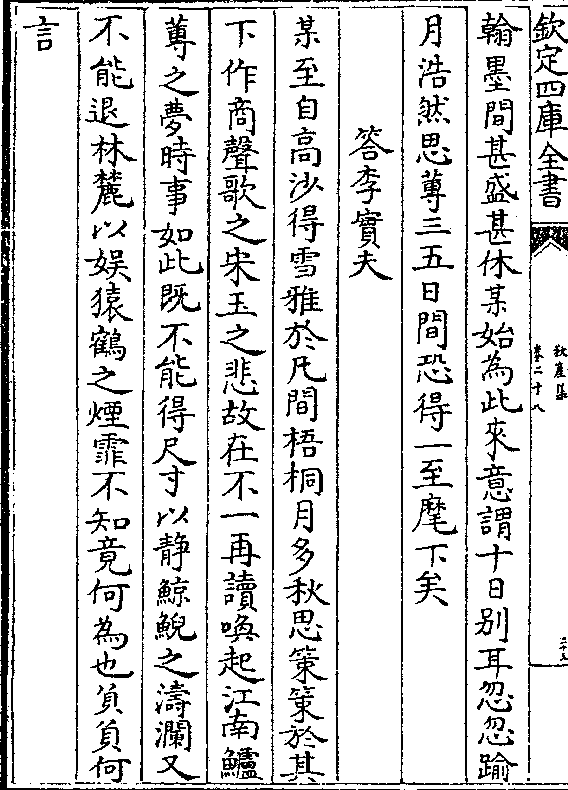 欽定四庫全書
秋崖集
卷二十八
翰墨間甚盛甚休某始為此來意謂十日别耳忽忽踰
月浩然思蓴三五日間恐得一至麾下矣
答李實夫
某至自高沙得雪雅於凡間梧桐月多秋思策策於其
下作商聲歌之宋玉之悲故在不一再讀喚起江南鱸
蓴之夢時事如此既不能得尺寸以静鯨鯢之濤瀾又
不能退林麓以娱猿鶴之煙霏不知竟何為也負負何
言